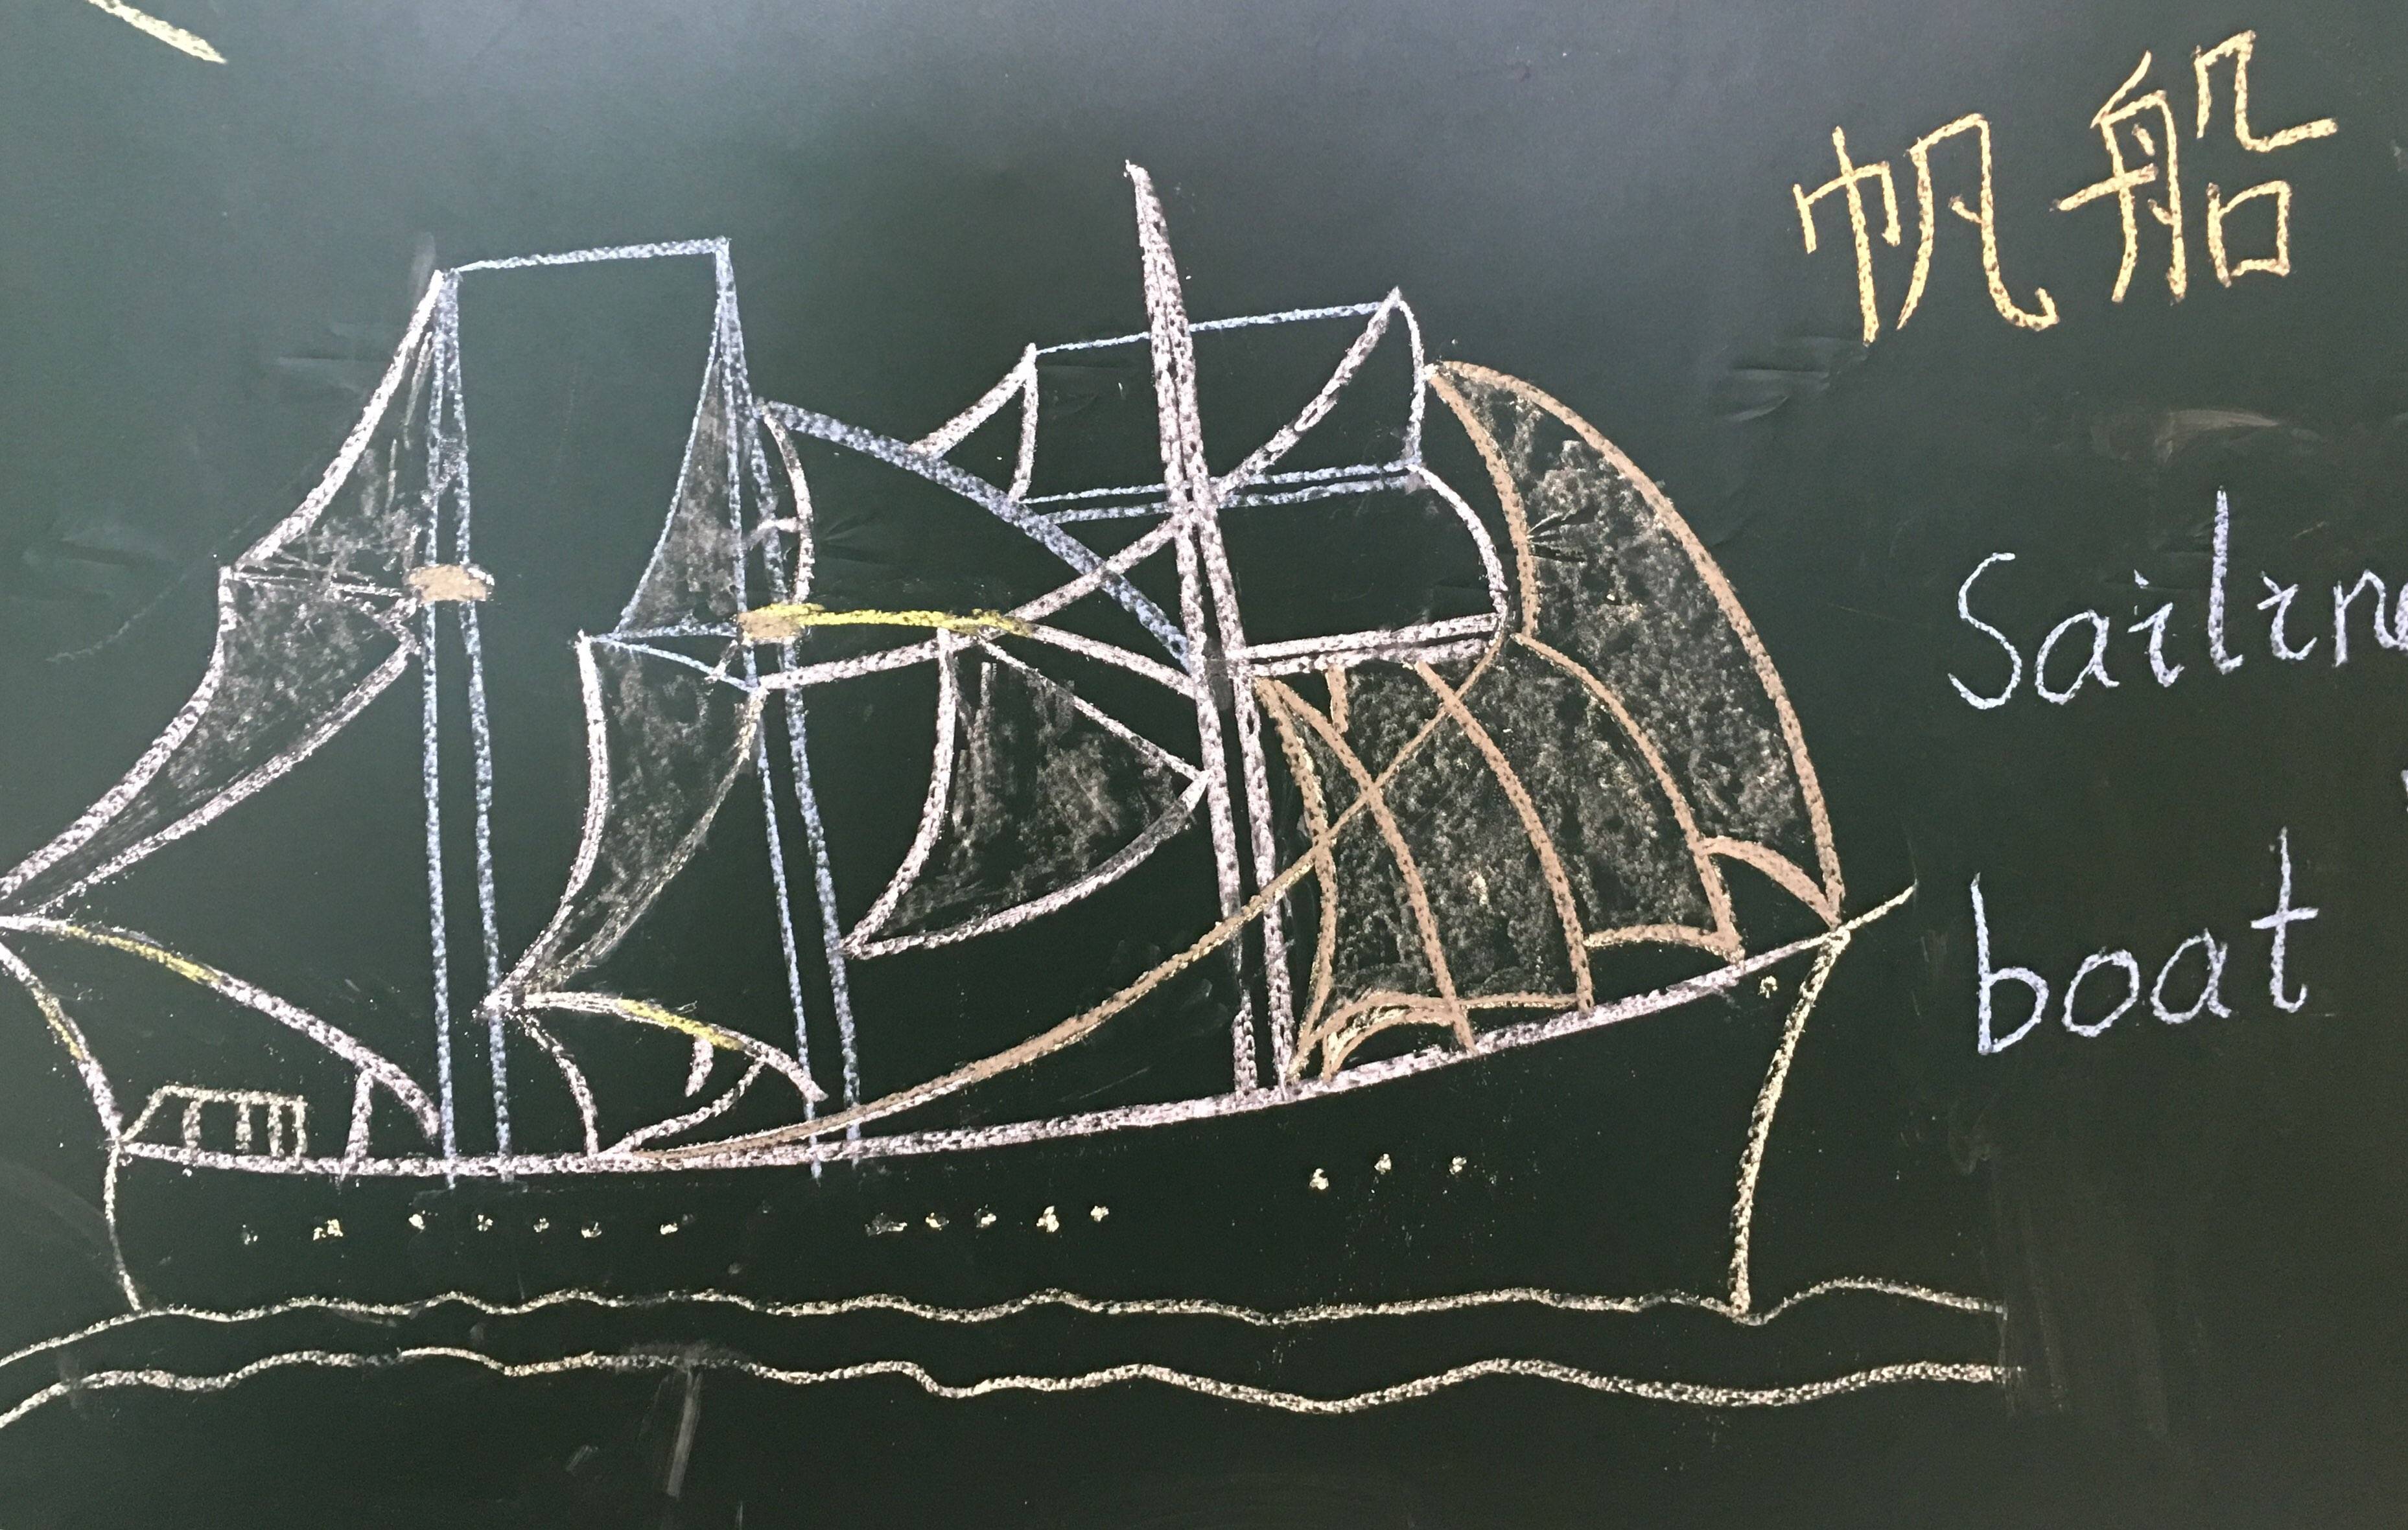 帆船
Sailin
boat